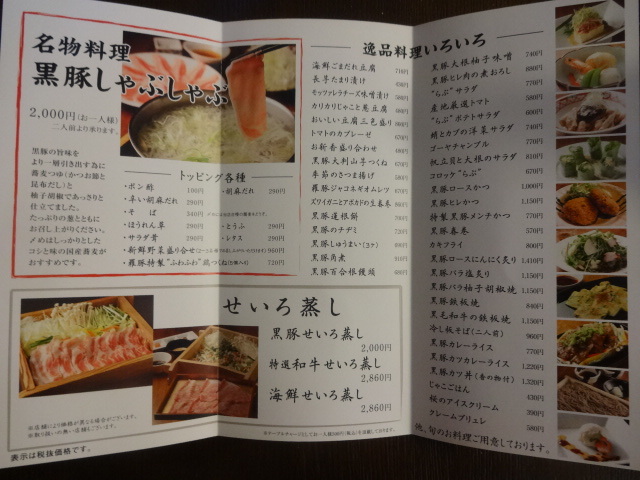 名物料理
黒豚しゃぶしゃぶ
2,000円(お一人様)
二人前より承ります。
黒豚の旨味を
より一層引き出す為に
蕎麦つゆ(かつお節と
昆布だし)と
柚子胡椒であっさりと
仕立てました。
たっぷりの葱とともに
お召し上がりください。
〆めはしっかりとした
コシと味の国産蕎麦が
おすすめです。
トッピング各種
・ポン酢 100円
・胡麻だれ 290円
・辛い胡麻だれ 290円
・そば 240円
・ほうれん草 290円
・とうふ 290円
・サラダ菁 290円
・レタス 290円
・新鮮野菜盛り合せ 960円
・羅豚特製"ふわふわ"鶏つくね 720円
せいろ蒸し
黒豚せいろ蒸し
2,000円
特選和牛せいろ蒸し
2,860円
海鮮せいろ蒸し
2,860円
※店舗により価格が異なる場合がございます。
※取り扱いの無い店舗もございます。
表示は税抜価格です。
逸品料理いろいろ
海鮮ごまだれ豆腐 710円
長芋たまり漬け
モッツァレラチーズ味噌漬け
カリカリじゃこと奴豆腐
おいしい豆腐三色盛り
トマトのカプレーゼ
お新香盛り合わせ
黒豚大判山芋つくね
季節のさつま揚げ
羅豚ジャコネギオムレツ
ズワイガニとアボカドの生春巻
黒豚蓮根餅
黒豚のチヂミ
黒豚しゅうまい
黒豚角煮
黒豚百合根饅頭
黒豚大根柚子味噌 740円
黒豚ヒレ肉の煮おろし 880円
"らぶ"サラダ 770円
産地厳選トマト
"らぶ"ポテトサラダ
蛸とカブの洋菜サラダ
ゴーヤチャンプル
帆立貝と大根のサラダ
コロッケ"らぶ"
黒豚ロースかつ 1,000円
黒豚ヒレかつ 1,150円
特製黒豚メンチかつ 770円
黒豚春巻 570円
カキフライ
黒豚ロースにんにく炙り 1,150円
黒豚バラ塩炙り 1,150円
黒豚バラ柚子胡椒焼 1,150円
黒豚鉄板焼 840円
黒毛和牛の鉄板焼 1,150円
冷し板そば(二人前) 960円
黒豚カレーライス 770円
黒豚カツカレーライス 1,220円
黒豚カツ丼(香の物付) 1,320円
じゃこごはん 430円
板のアイスクリーム 390円
クレームブリュレ 580円
他、旬のお料理ご用意しております。